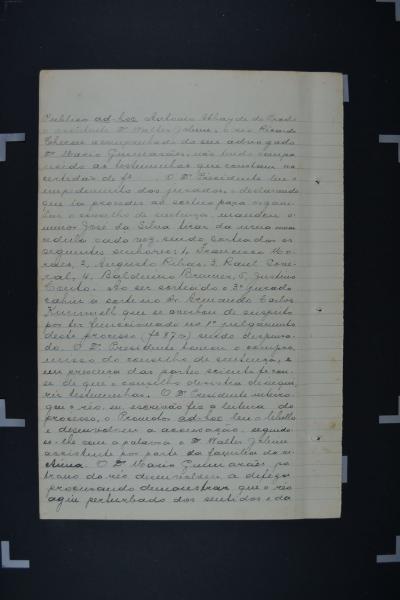 Publico ad-hoc Antonio Abbayde do Prado
o assistente Dr Walter Jobim, o reo Ricardo
acompanhado do seu advogado
Dr Mario Guimarães, não tendo compa-
recido as testemunhas que constam na
certidão de fs . O Dr Presidente leu o
impedimento dos jurados, e declarando
que ia proceder ao sorteio para organi-
zar o conselho de sentença, mandou o
menor José da Silva tirar da urna uma
cedula cada vez, sendo sorteados os
seguintes senhores: 1, Francisco Mo-
raes, 2, Augusto Ribas, 3, Raul
4, Balduino 5, Justino
Couto. Ao ser sorteado o 3º jurado
cahiu a sorte no Sr Armando Carlos
que se averbou de suspeito
por ter funccionado no 1º julgamento
deste processo (fs 87v) sendo dispensa-
do. O Dr Presidente tomou o compro-
misso do conselho de sentença, e
em presença das partes scientificou-
se de que o conselho
testemunhas. O Dr Presidente
que o réo, eu, escrivão fiz a leitura do
processo, o Promotor ad-hoc leu o libello
e desenvolveu a accusação, seguindo-
se-lhe com a palavra o Dr Walter Jobim
assistente por parte da familia da
Anna. O Dr Mario Guimarães, pa-
trono do réo desenvolveu a defeza
procurando demonstrar que o réo
agiu perturbado dos sentidos e da